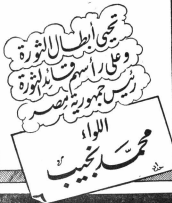 تحيى أبطال الثورة
وعلى رأسهم قائد الثورة
رئيس جمهورية مصر
اللواء
محمد نجيب